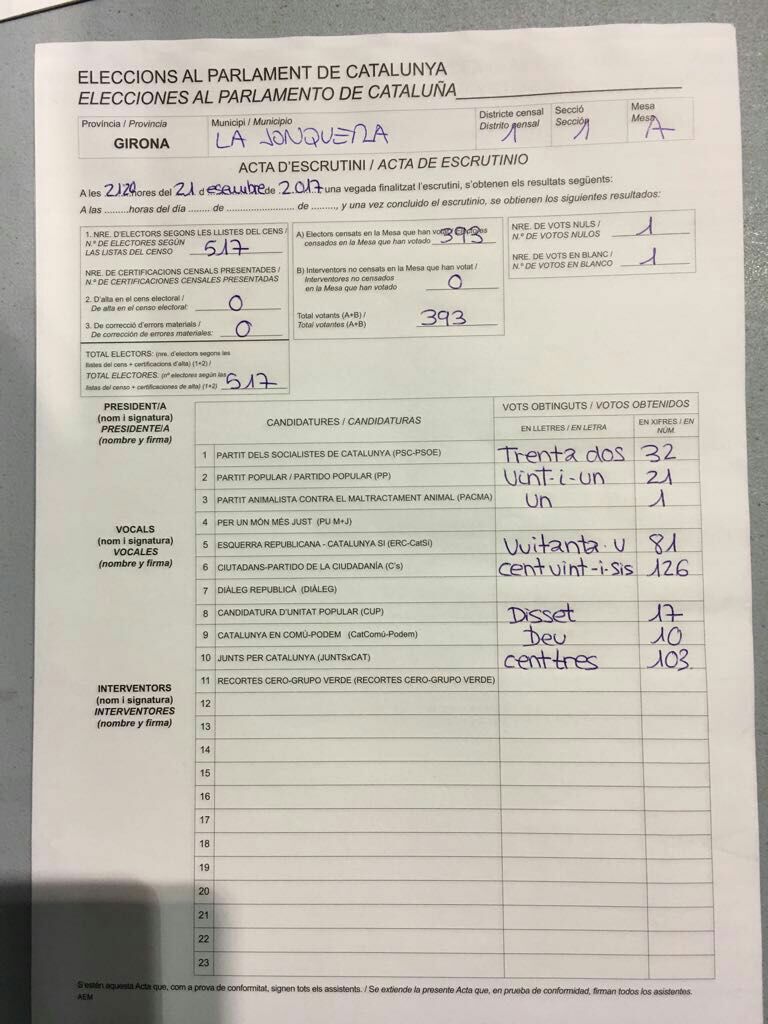 ELECCIONS AL PARLAMENT DE CATALUNYA
ELECCIONES AL PARLAMENTO DE CATALUÑA
Província / Provincia
GIRONA
Municipi / Municipio
LA JONQUERA
Districte censal
Distrito censal
1
Secció
Sección
1
Mesa
Mesa
A
ACTA D'ESCRUTINI / ACTA DE ESCRUTINIO
A les 2120 hores del 21 d esembre de 2.017 una vegada finalitzat l'escrutini, s'obtenen els resultats següents:
A las .........horas del día ........ de .......................... de ........., y una vez concluido el escrutinio, se obtienen los siguientes resultados:
1. NRE. D'ELECTORS SEGONS LES LLISTES DEL CENS /
N.º DE ELECTORES SEGÚN
LAS LISTAS DEL CENSO 517
NRE. DE CERTIFICACIONS CENSALS PRESENTADES /
N.º DE CERTIFICACIONES CENSALES PRESENTADAS
2. D'alta en el cens electoral /
De alta en el censo electoral: 0
3. De correcció d'errors materials /
De corrección de errores materiales: 0
TOTAL ELECTORS: (nre. d'electors segons les
llistes del cens + certificacions d'alta) (1+2) /
TOTAL ELECTORES: (nº electores según las
listas del censo + certificaciones de alta) (1+2) 517
A) Electors censats en la Mesa que han votat / Electores
censados en la Mesa que han votado 393
B) Interventors no censats en la Mesa que han votat /
Interventores no censados
en la Mesa que han votado 0
Total votants (A+B) /
Total votantes (A+B) 393
NRE. DE VOTS NULS /
N.º DE VOTOS NULOS 1
NRE. DE VOTS EN BLANC /
N.º DE VOTOS EN BLANCO 1
PRESIDENT/A
(nom i signatura)
PRESIDENTE/A
(nombre y firma)
VOCALS
(nom i signatura)
VOCALES
(nombre y firma)
INTERVENTORS
(nom i signatura)
INTERVENTORES
(nombre y firma)
CANDIDATURES / CANDIDATURAS
VOTS OBTINGUTS / VOTOS OBTENIDOS
EN LLETRES / EN LETRA
EN XIFRES / EN NÚM.
1 PARTIT DELS SOCIALISTES DE CATALUNYA (PSC-PSOE) Trenta dos 32
2 PARTIT POPULAR / PARTIDO POPULAR (PP) Vint-i-un 21
3 PARTIT ANIMALISTA CONTRA EL MALTRACTAMENT ANIMAL (PACMA) Un 1
4 PER UN MÓN MÉS JUST (PU M+J)
5 ESQUERRA REPUBLICANA - CATALUNYA SÍ (ERC-CatSí) Vuitanta-u 81
6 CIUTADANS-PARTIDO DE LA CIUDADANÍA (C's) cent vint-i-sis 126
7 DIÀLEG REPUBLICÀ (DIÀLEG)
8 CANDIDATURA D'UNITAT POPULAR (CUP) Disset 17
9 CATALUNYA EN COMÚ-PODEM (CatComú-Podem) Deu 10
10 JUNTS PER CATALUNYA (JUNTSxCAT) cent tres 103
11 RECORTES CERO-GRUPO VERDE (RECORTES CERO-GRUPO VERDE)
12
13
14
15
16
17
18
19
20
21
22
23
S'estén aquesta Acta que, com a prova de conformitat, signen tots els assistents. / Se extiende la presente Acta que, en prueba de conformidad, firman todos los asistentes.
AEM